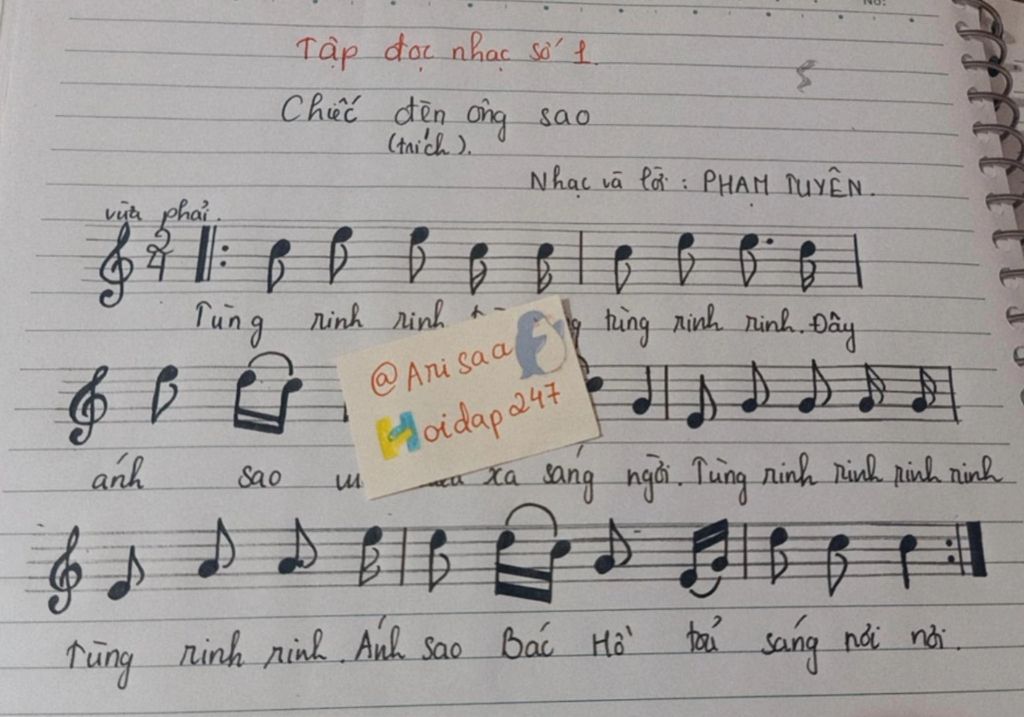 No:
Tập đọc nhạc số 1.
Chiếc đèn ông sao
(trích).
Nhạc và lời: PHẠM TUYÊN.
vừa phải.
2
4
Tùng rinh rinh tùng rinh rinh. Đây
@Arisaa
Hoidap247
ánh sao xa sáng ngời. Tùng rinh rinh rinh rinh
Tùng rinh rinh. Ánh sao Bác Hồ toả sáng nơi nơi.